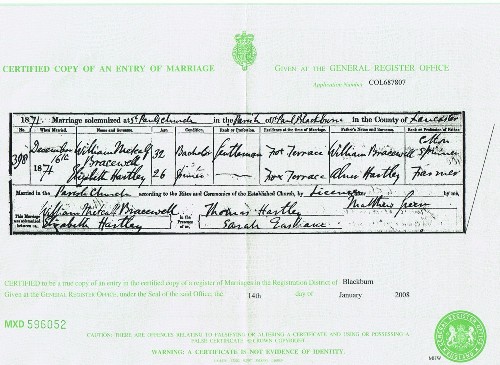 CERTIFIED COPY OF AN ENTRY OF MARRIAGE
GIVEN AT THE GENERAL REGISTER OFFICE
Application Number COL687807
1871. Marriage solemnized at St Paul's Church in the Parish of St Paul Blackburn in the County of Lancaster
No. When Married. Name and Surname. Age. Condition. Rank or Profession. Residence at the time of Marriage. Father's Name and Surname. Rank or Profession of Father.
398 December 16th 1871 William Metcalf Bracewell 32 Bachelor Gentleman Fox Terrace William Bracewell Cotton Spinner
Elizabeth Hartley 26 Fox Terrace Hartley Farmer
Married in the Parish Church according to the Rites and Ceremonies of the Established Church, by Licence by me,
Matthew Green
This Marriage was solemnized between us, William Metcalf Bracewell Elizabeth Hartley in the Presence of us, Thomas Hartley Sarah
CERTIFIED to be a true copy of an entry in the certified copy of a register of Marriages in the Registration District of Blackburn
Given at the GENERAL REGISTER OFFICE, under the Seal of the said Office, the 14th day of January 2008
MXD 596052
CAUTION: THERE ARE OFFENCES RELATING TO FALSIFYING OR ALTERING A CERTIFICATE AND USING OR POSSESSING A
FALSE CERTIFICATE. © CROWN COPYRIGHT
WARNING: A CERTIFICATE IS NOT EVIDENCE OF IDENTITY.
GENERAL REGISTER OFFICE
ENGLAND